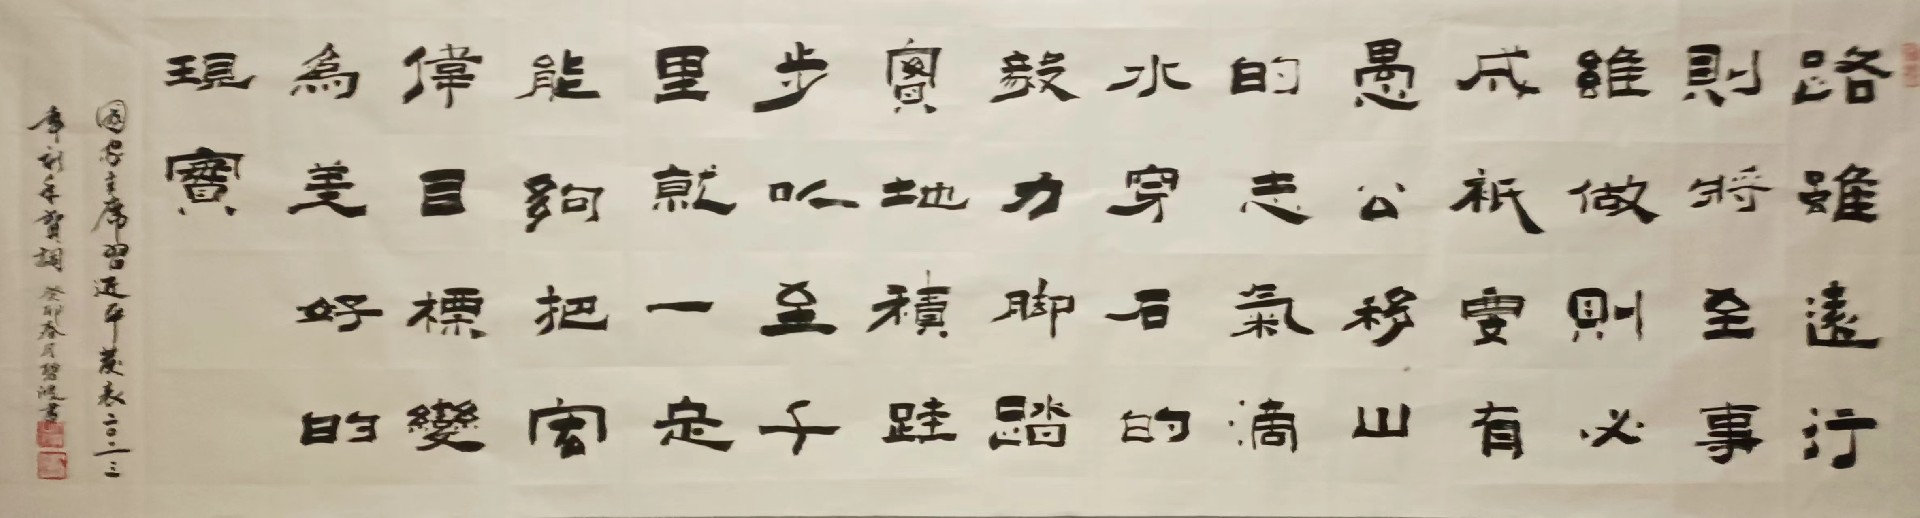 路雖遠行
則將至事
雖做則必
成祇要有
愚公移山
的志氣滴
水穿石的
毅力腳踏
實地積跬
步以至千
里就一定
能夠把宏
偉目標變
為美好的
現實
國家主席習近平發表二〇二三
年新年賀詞 癸卯春月碧波書